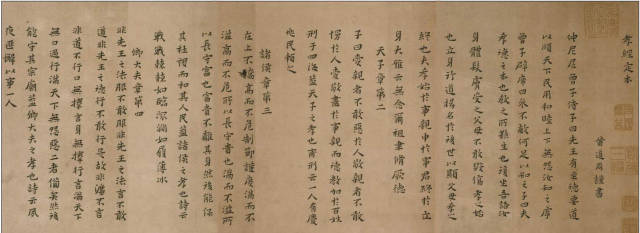 孝經定本
管道昇謹書
仲尼居曾子侍子曰先王有至德要道
以順天下民用和睦上下無怨汝知之乎
曾子辟席曰參不敏何足以知之子曰夫
孝德之本也教之所繇生也復坐吾語汝
身體髮膚受之父母不敢毀傷孝之始
也立身行道揚名於後世以顯父母孝之
終也夫孝始於事親中於事君終於立
身大雅云無念爾祖聿脩厥德
天子章第二
子曰愛親者不敢惡於人敬親者不敢
慢於人愛敬盡於事親而德教加於百姓
刑于四海蓋天子之孝也甫刑云一人有慶
兆民賴之
諸侯章第三
在上不驕高而不危制節謹度滿而不
溢高而不危所以長守貴也滿而不溢所
以長守富也富貴不離其身然後能保
其社稷而和其人民蓋諸侯之孝也詩云
戰戰兢兢如臨深淵如履薄冰
卿大夫章第四
非先王之法服不敢服非先王之法言不敢
道非先王之德行不敢行是故非法不言
非道不行口無擇言身無擇行言滿天下
無口過行滿天下無怨惡三者備矣然後
能守其宗廟蓋卿大夫之孝也詩云夙
夜匪懈以事一人